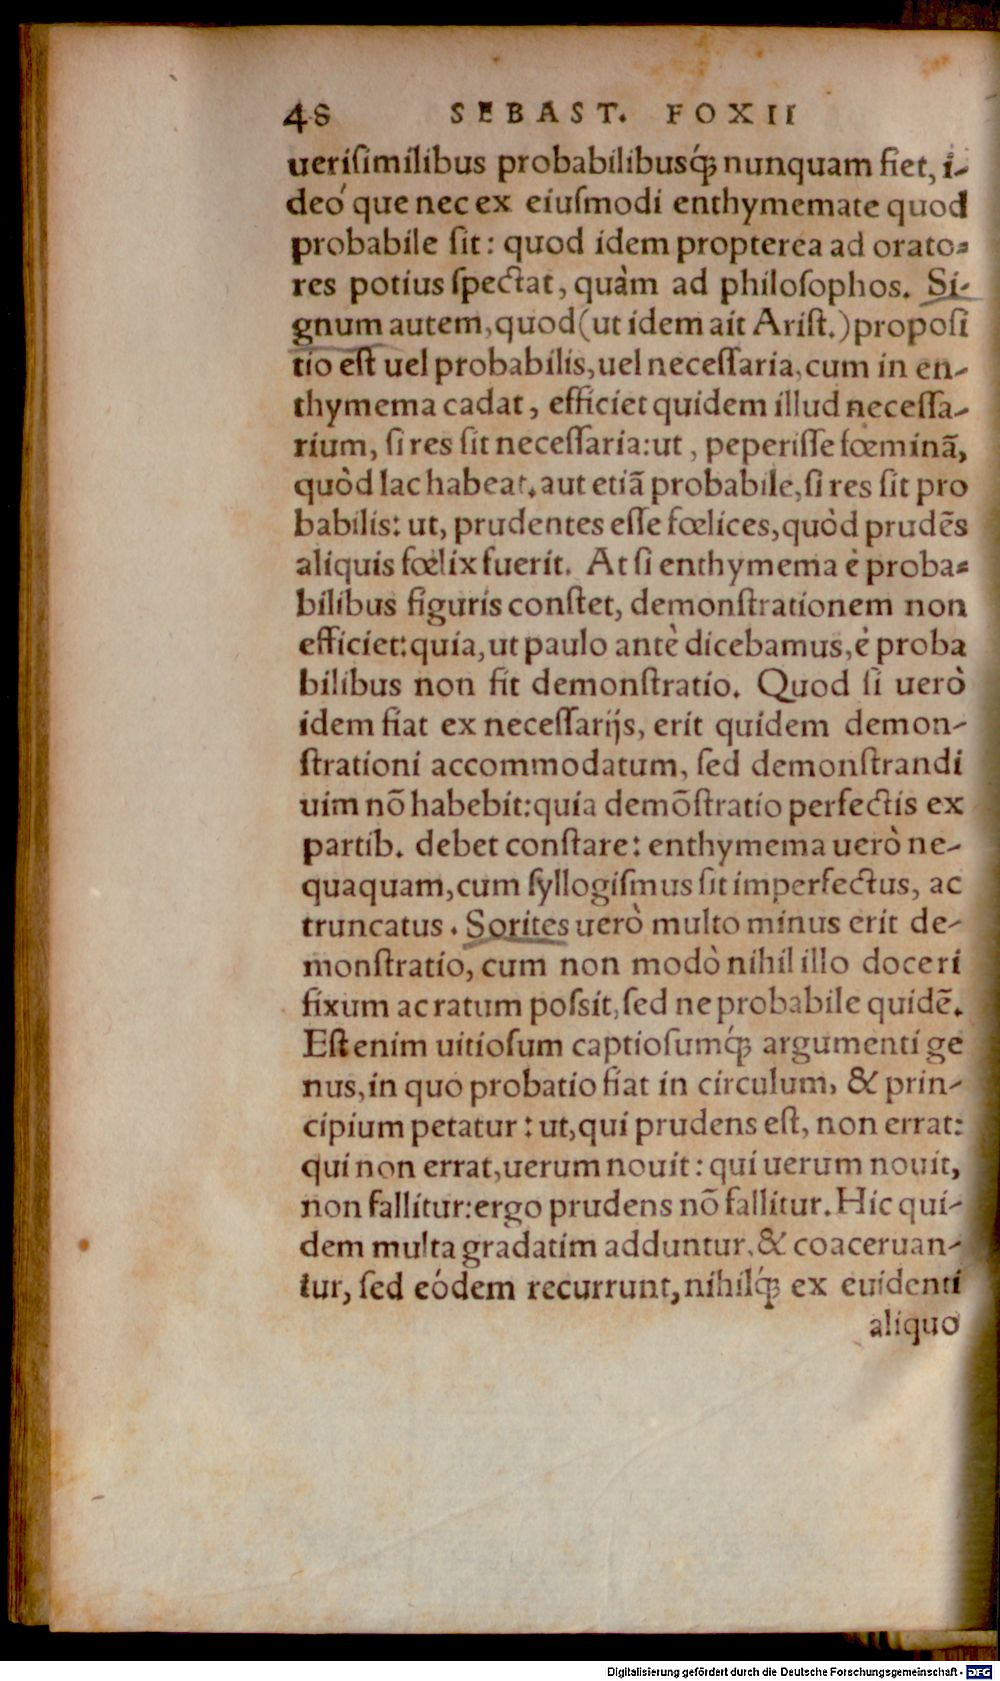 48 SEBAST. FOXII
ueriſimilibus probabilibusq́; nunquam fiet, i-
deó que nec ex eiuſmodi enthymemate quod
probabile ſit: quod idem propterea ad orato-
res potius ſpectat, quàm ad philoſophos. Si-
gnum autem, quod (ut idem ait Ariſt.) propoſi
tio eſt uel probabilis, uel neceſſaria, cum in en-
thymema cadat, efficiet quidem illud neceſſa-
rium, ſi res ſit neceſſaria: ut, peperiſſe fœminã,
quòd lac habeat. aut etiã probabile, ſi res ſit pro
babilis: ut, prudentes eſſe fœlices, quòd prudẽs
aliquis fœlix fuerit. At ſi enthymema è proba-
bilibus figuris conſtet, demonſtrationem non
efficiet: quia, ut paulo antè dicebamus, è proba
bilibus non fit demonſtratio. Quod ſi uerò
idem fiat ex neceſſarijs, erit quidem demon-
ſtrationi accommodatum, ſed demonſtrandi
uim nõ habebit: quia demõſtratio perfectis ex
partib. debet conſtare: enthymema uerò ne-
quaquam, cum ſyllogiſmus ſit imperfectus, ac
truncatus. Sorites uerò multo minus erit de-
monſtratio, cum non modò nihil illo doceri
fixum ac ratum poſsit, ſed ne probabile quidẽ.
Eſt enim uitioſum captioſumq́; argumenti ge
nus, in quo probatio fiat in circulum, & prin-
cipium petatur: ut, qui prudens eſt, non errat:
qui non errat, uerum nouit: qui uerum nouit,
non fallitur: ergo prudens nõ fallitur. Hic qui-
dem multa gradatim adduntur, & coaceruan-
tur, ſed eódem recurrunt, nihilq́; ex euidenti
aliquo
Digitalisierung gefördert durch die Deutsche Forschungsgemeinschaft - DFG